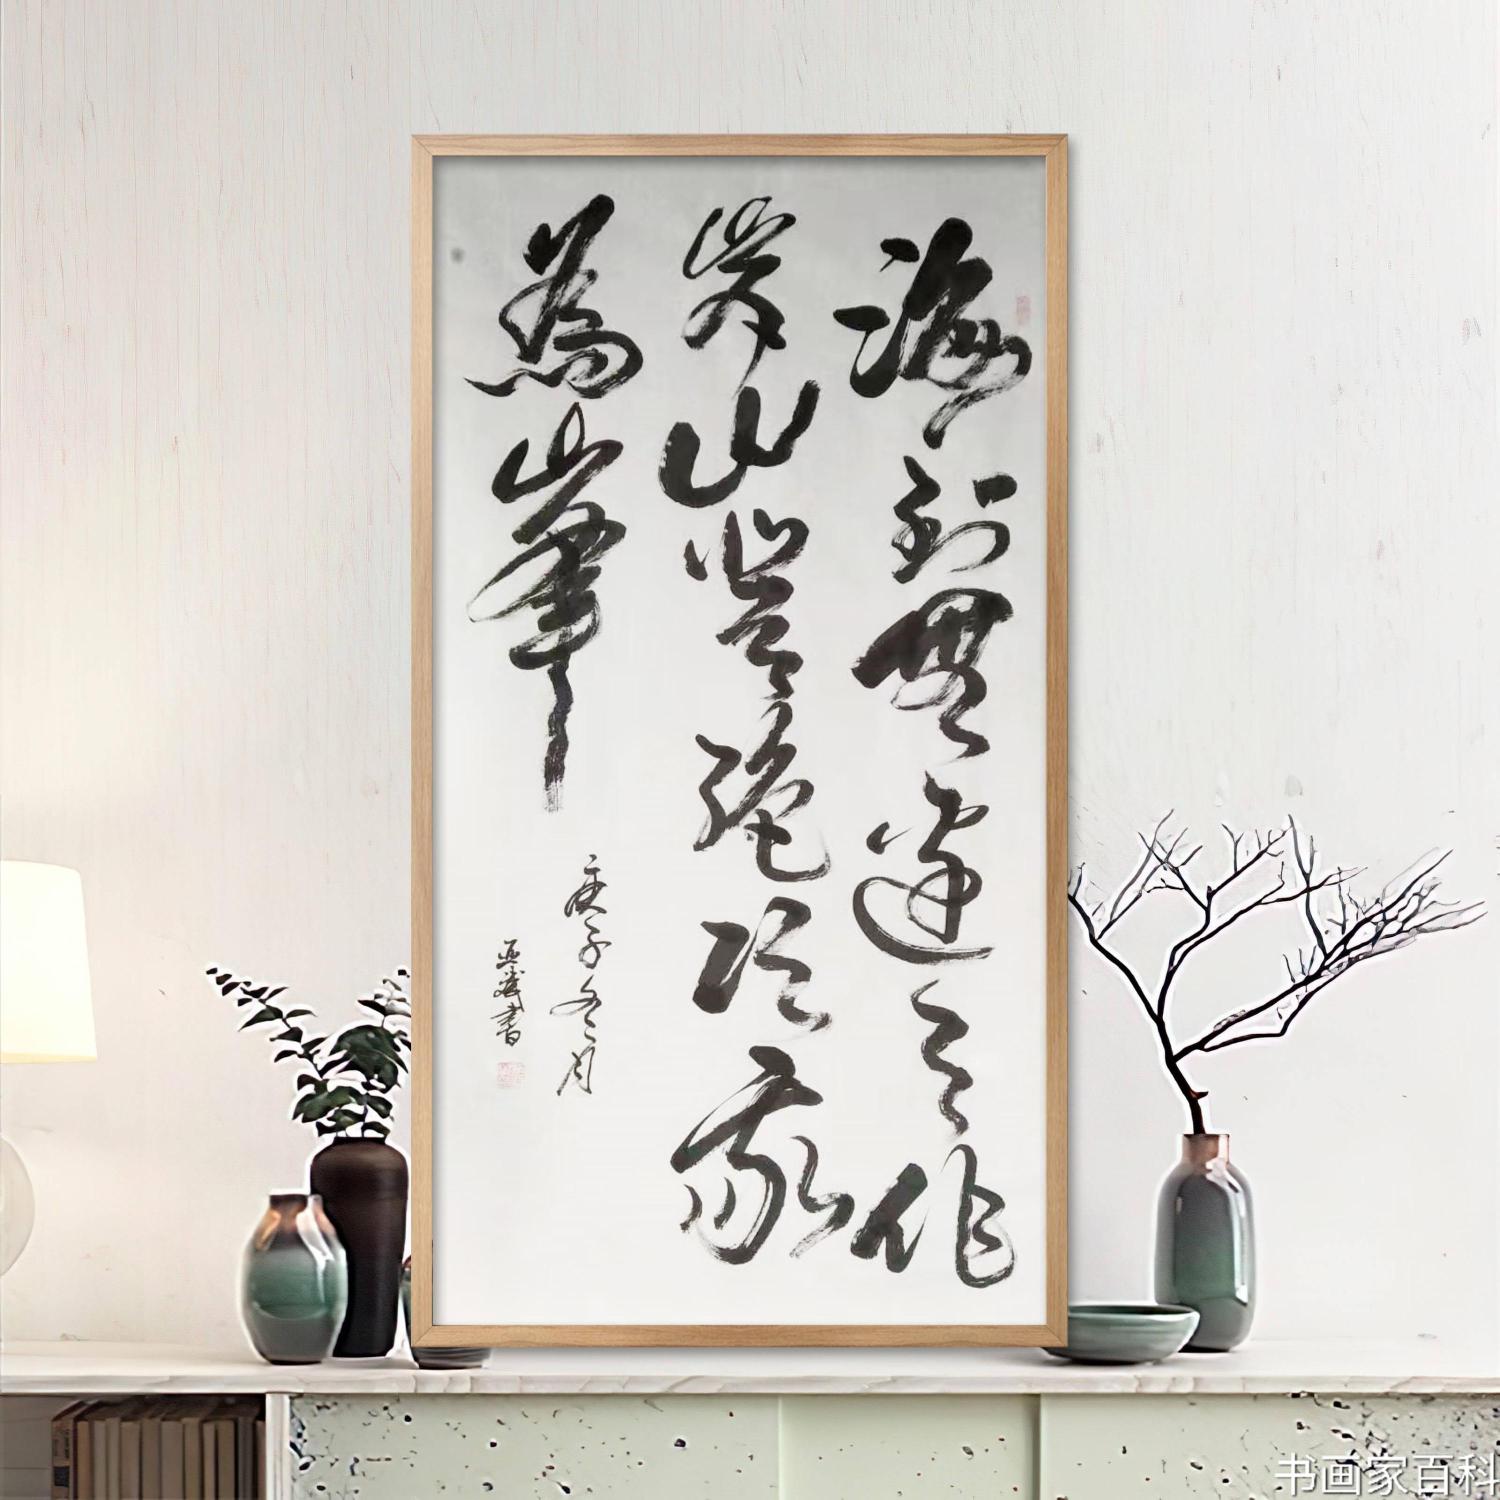 海到無邊天作
岸山登絕頂我
為峯
庚子冬月
書
书画家百科